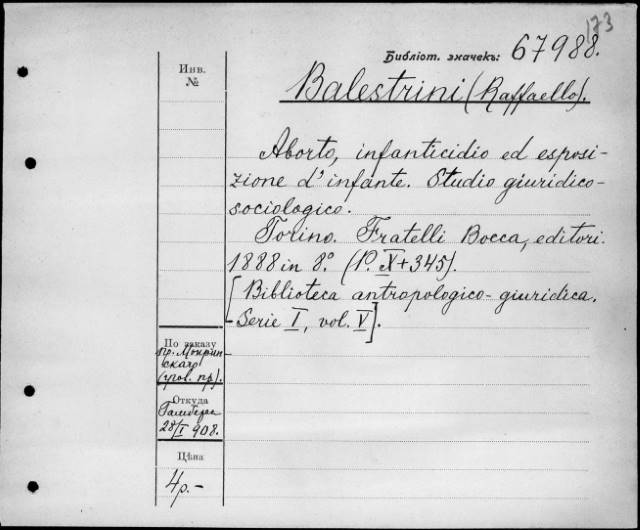 173
Библіот. значекъ: 67988.
Инв.
№
Balestrini (Raffaello).
Aborto, infanticidio ed esposi-
zione d'infante. Studio giuridico-
sociologico.
Torino. Fratelli Bocca, editori.
1888 in 8.° (P. X+345).
[Biblioteca antropologico-giuridica.
Serie I, vol. V].
По заказу
пр. Мокрин-
скаго
(угол. пр).
Откуда
28/I 908.
Цѣна
4р.-